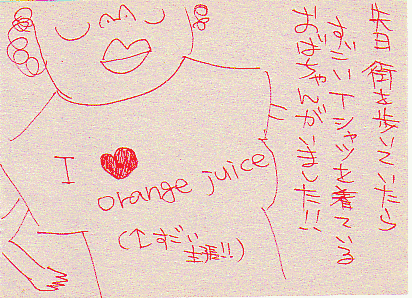 先日 街を歩いていたら
すごいTシャツを着ている
おばちゃんがいました!!
I ♥ orange juice
(↑すごい
主張!!)